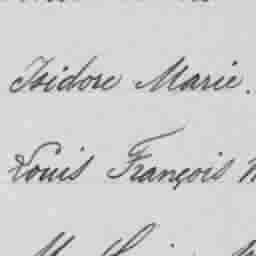 Isidore Marie.
Louis François